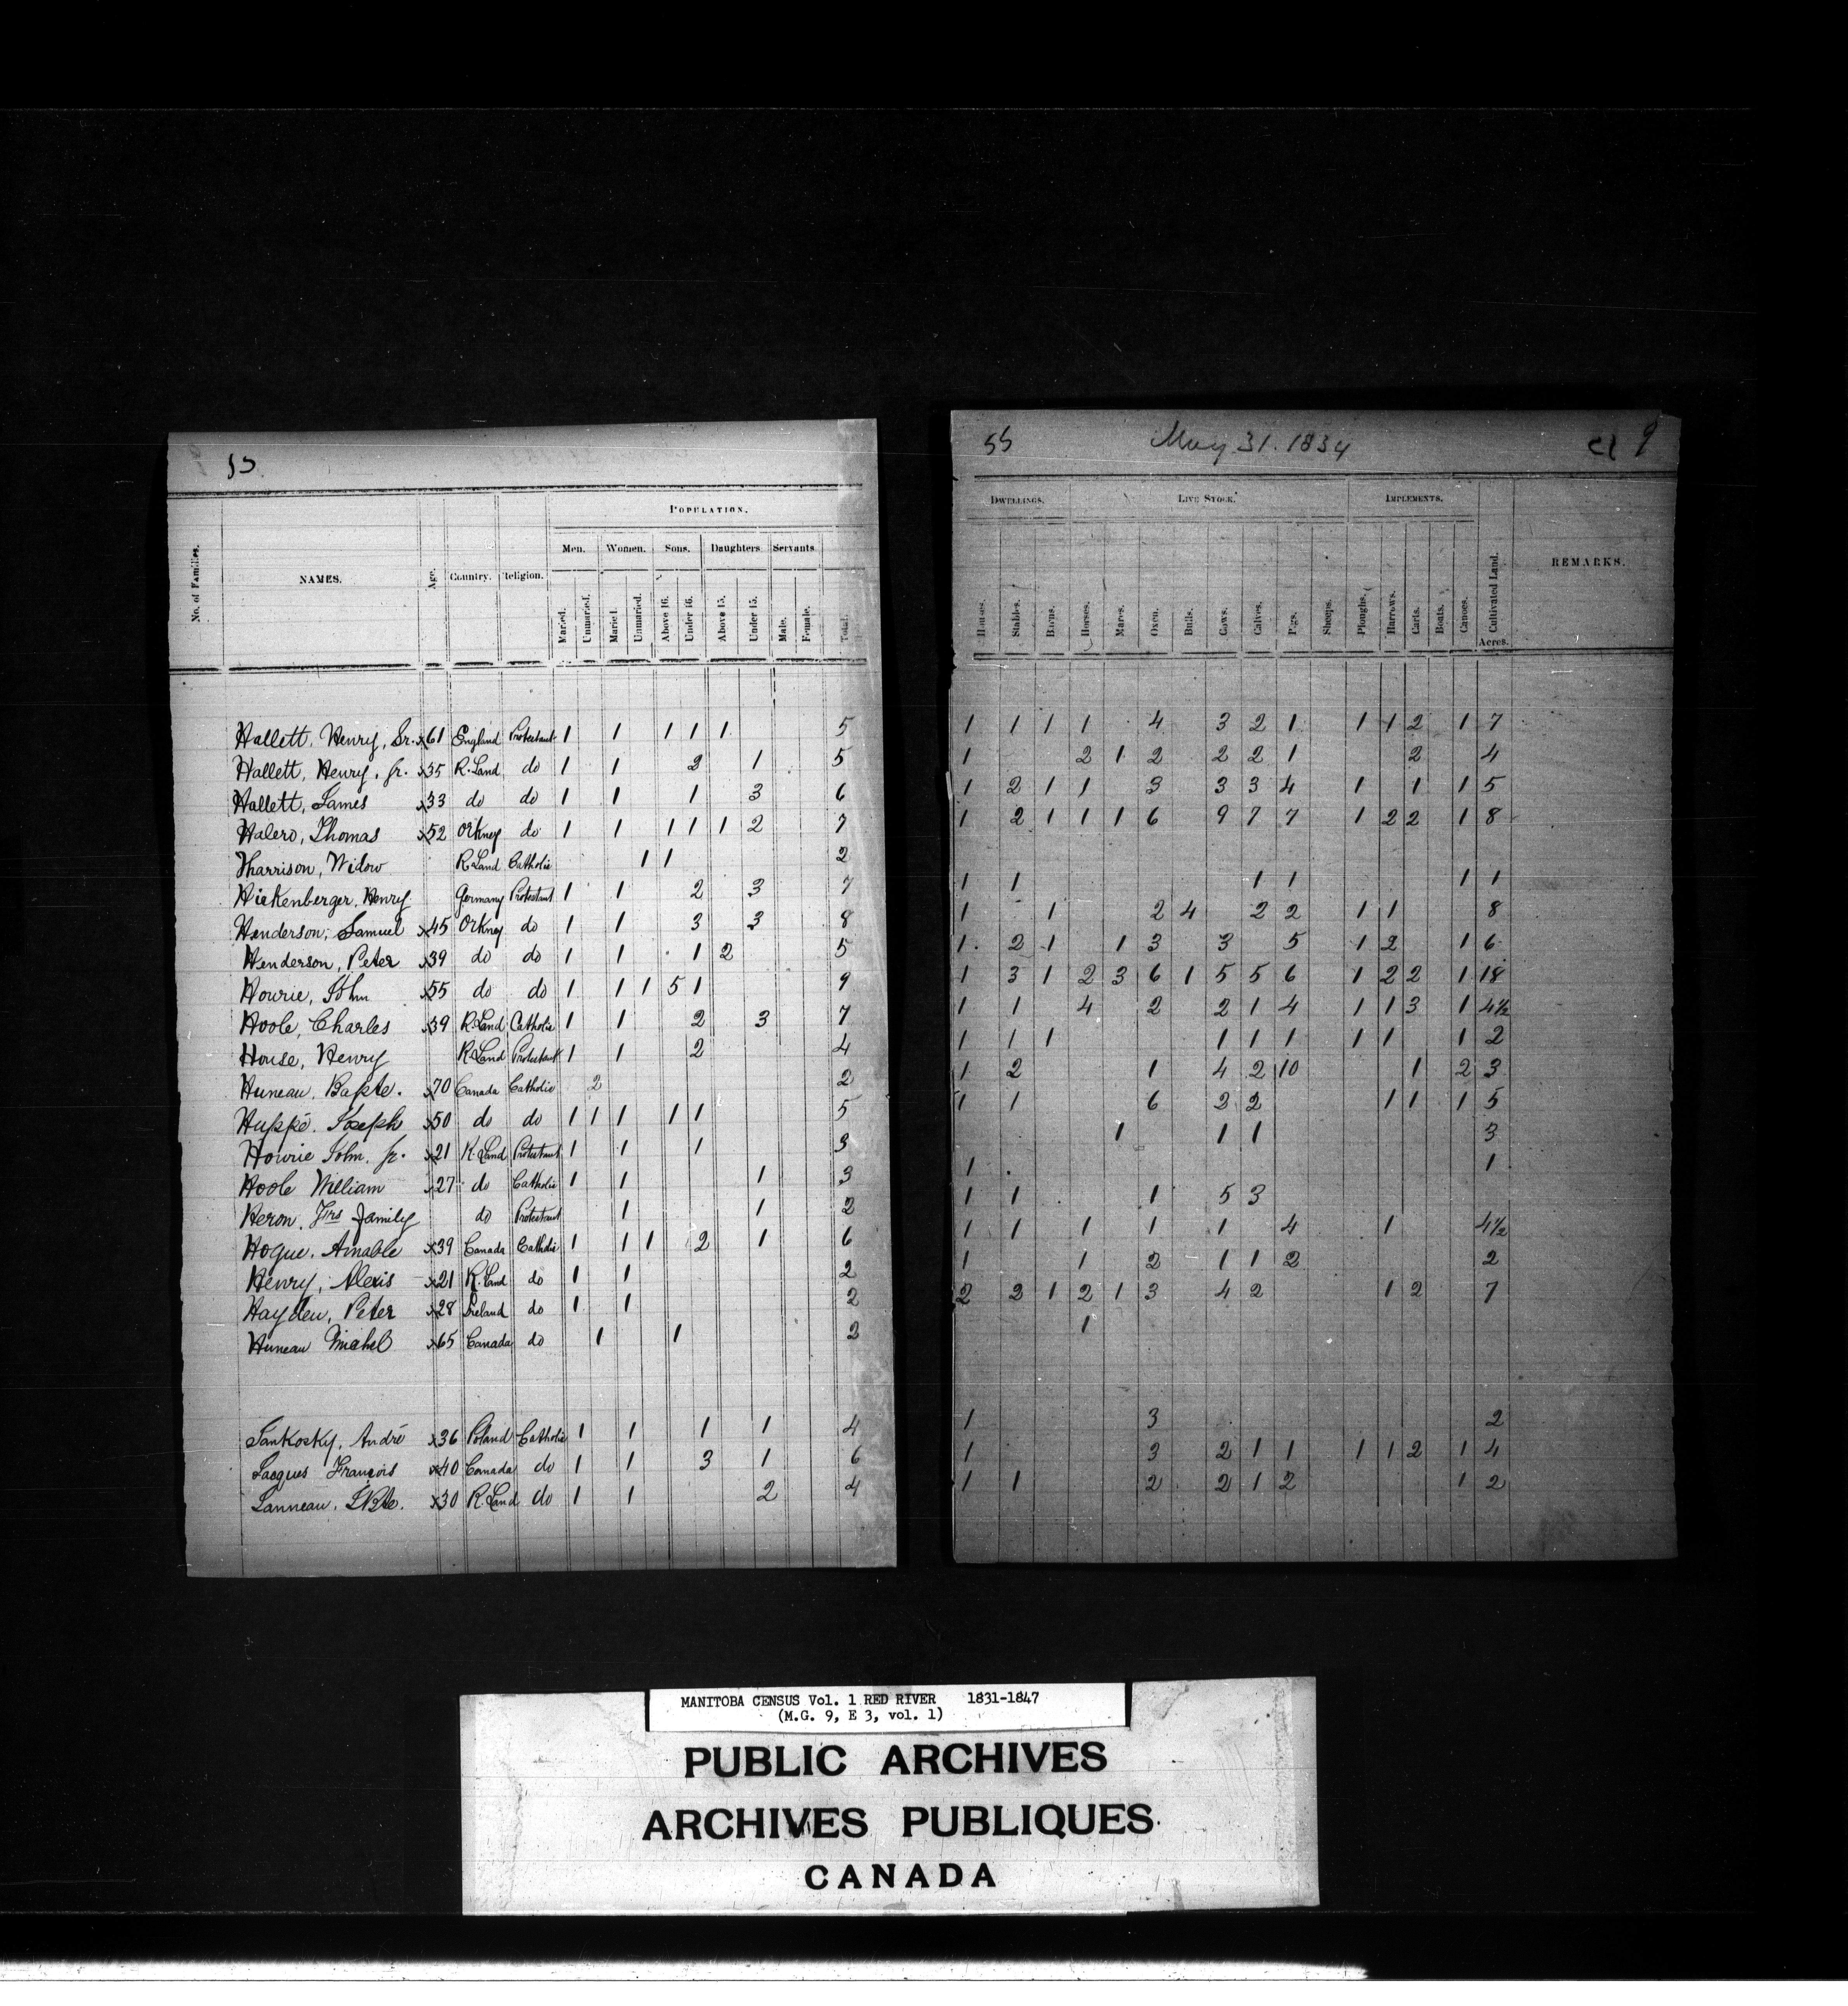 55
POPULATION.
Men. Women. Sons. Daughters Servants
No. of Families. NAMES. Age. Country. Religion. Maried. Unmaried. Maried. Unmaried. Above 16. Under 16. Above 15. Under 15. Male. Female. Total.
Hallett, Henry, Sr. x61 England Protestant 1 1 1 1 1 5
Hallett, Henry, jr. x35 R. Land do 1 1 2 1 5
Hallett, James x33 do do 1 1 1 3 6
Halero, Thomas x52 Orkney do 1 1 1 1 1 2 7
Harrison, Widow R. Land Catholic 1 1 2
Hickenberger, Henry Germany Protestant 1 1 2 3 7
Henderson, Samuel x45 Orkney do 1 1 3 3 8
Henderson, Peter x39 do do 1 1 1 2 5
Hourie, John x55 do do 1 1 1 5 1 9
Hoole, Charles x39 R. Land Catholic 1 1 2 3 7
House, Henry R. Land Protestant 1 1 2 4
Huneau, Bapte. x70 Canada Catholic 2 2
Huppé, Joseph x50 do do 1 1 1 1 1 5
Hourie John, jr. x21 R. Land Protestant 1 1 1 3
Hoole William x27 do Catholic 1 1 1 3
Heron, Frs Family do Protestant 1 1 2
Hogue, Amable x39 Canada Catholic 1 1 1 2 1 6
Henry, Alexis x21 R. Land do 1 1 2
Hayden, Peter x28 Ireland do 1 1 2
Huneau Michel x65 Canada do 1 1 2
Jankosky, André x36 Poland Catholic 1 1 1 1 4
Jacques François x40 Canada do 1 1 3 1 6
Janneau, J Bte. x30 R. Land do 1 1 2 4
55 May 31. 1834 9
DWELLINGS. LIVE STOCK. IMPLEMENTS.
Houses. Stables. Barns. Horses. Mares. Oxen. Bulls. Cows. Calves. Pigs. Sheeps. Ploughs. Harrows. Carts. Boats. Canoes. Cultivated Land. REMARKS.
Acres.
1 1 1 1 4 3 2 1 1 1 2 1 7
1 2 1 2 2 2 1 2 4
1 2 1 1 3 3 3 4 1 1 1 5
1 2 1 1 1 6 9 7 7 1 2 2 1 8
1 1 1 1 1 1
1 1 2 4 2 2 1 1 8
1 2 1 1 3 3 5 1 2 1 6
1 3 1 2 3 6 1 5 5 6 1 2 2 1 18
1 1 4 2 2 1 4 1 1 3 1 4½
1 1 1 1 1 1 1 1 1 2
1 2 1 4 2 10 1 2 3
1 1 6 2 2 1 1 1 5
1 1 1 3
1 1
1 1 1 5 3
1 1 1 1 1 4 1 4½
1 1 2 1 1 2 2
2 2 1 2 1 3 4 2 1 2 7
1
1 3 2
1 3 2 1 1 1 1 2 1 4
1 1 2 2 1 2 1 2
MANITOBA CENSUS Vol. 1 RED RIVER 1831-1847
(M.G. 9, E 3, vol. 1)
PUBLIC ARCHIVES
ARCHIVES PUBLIQUES
CANADA